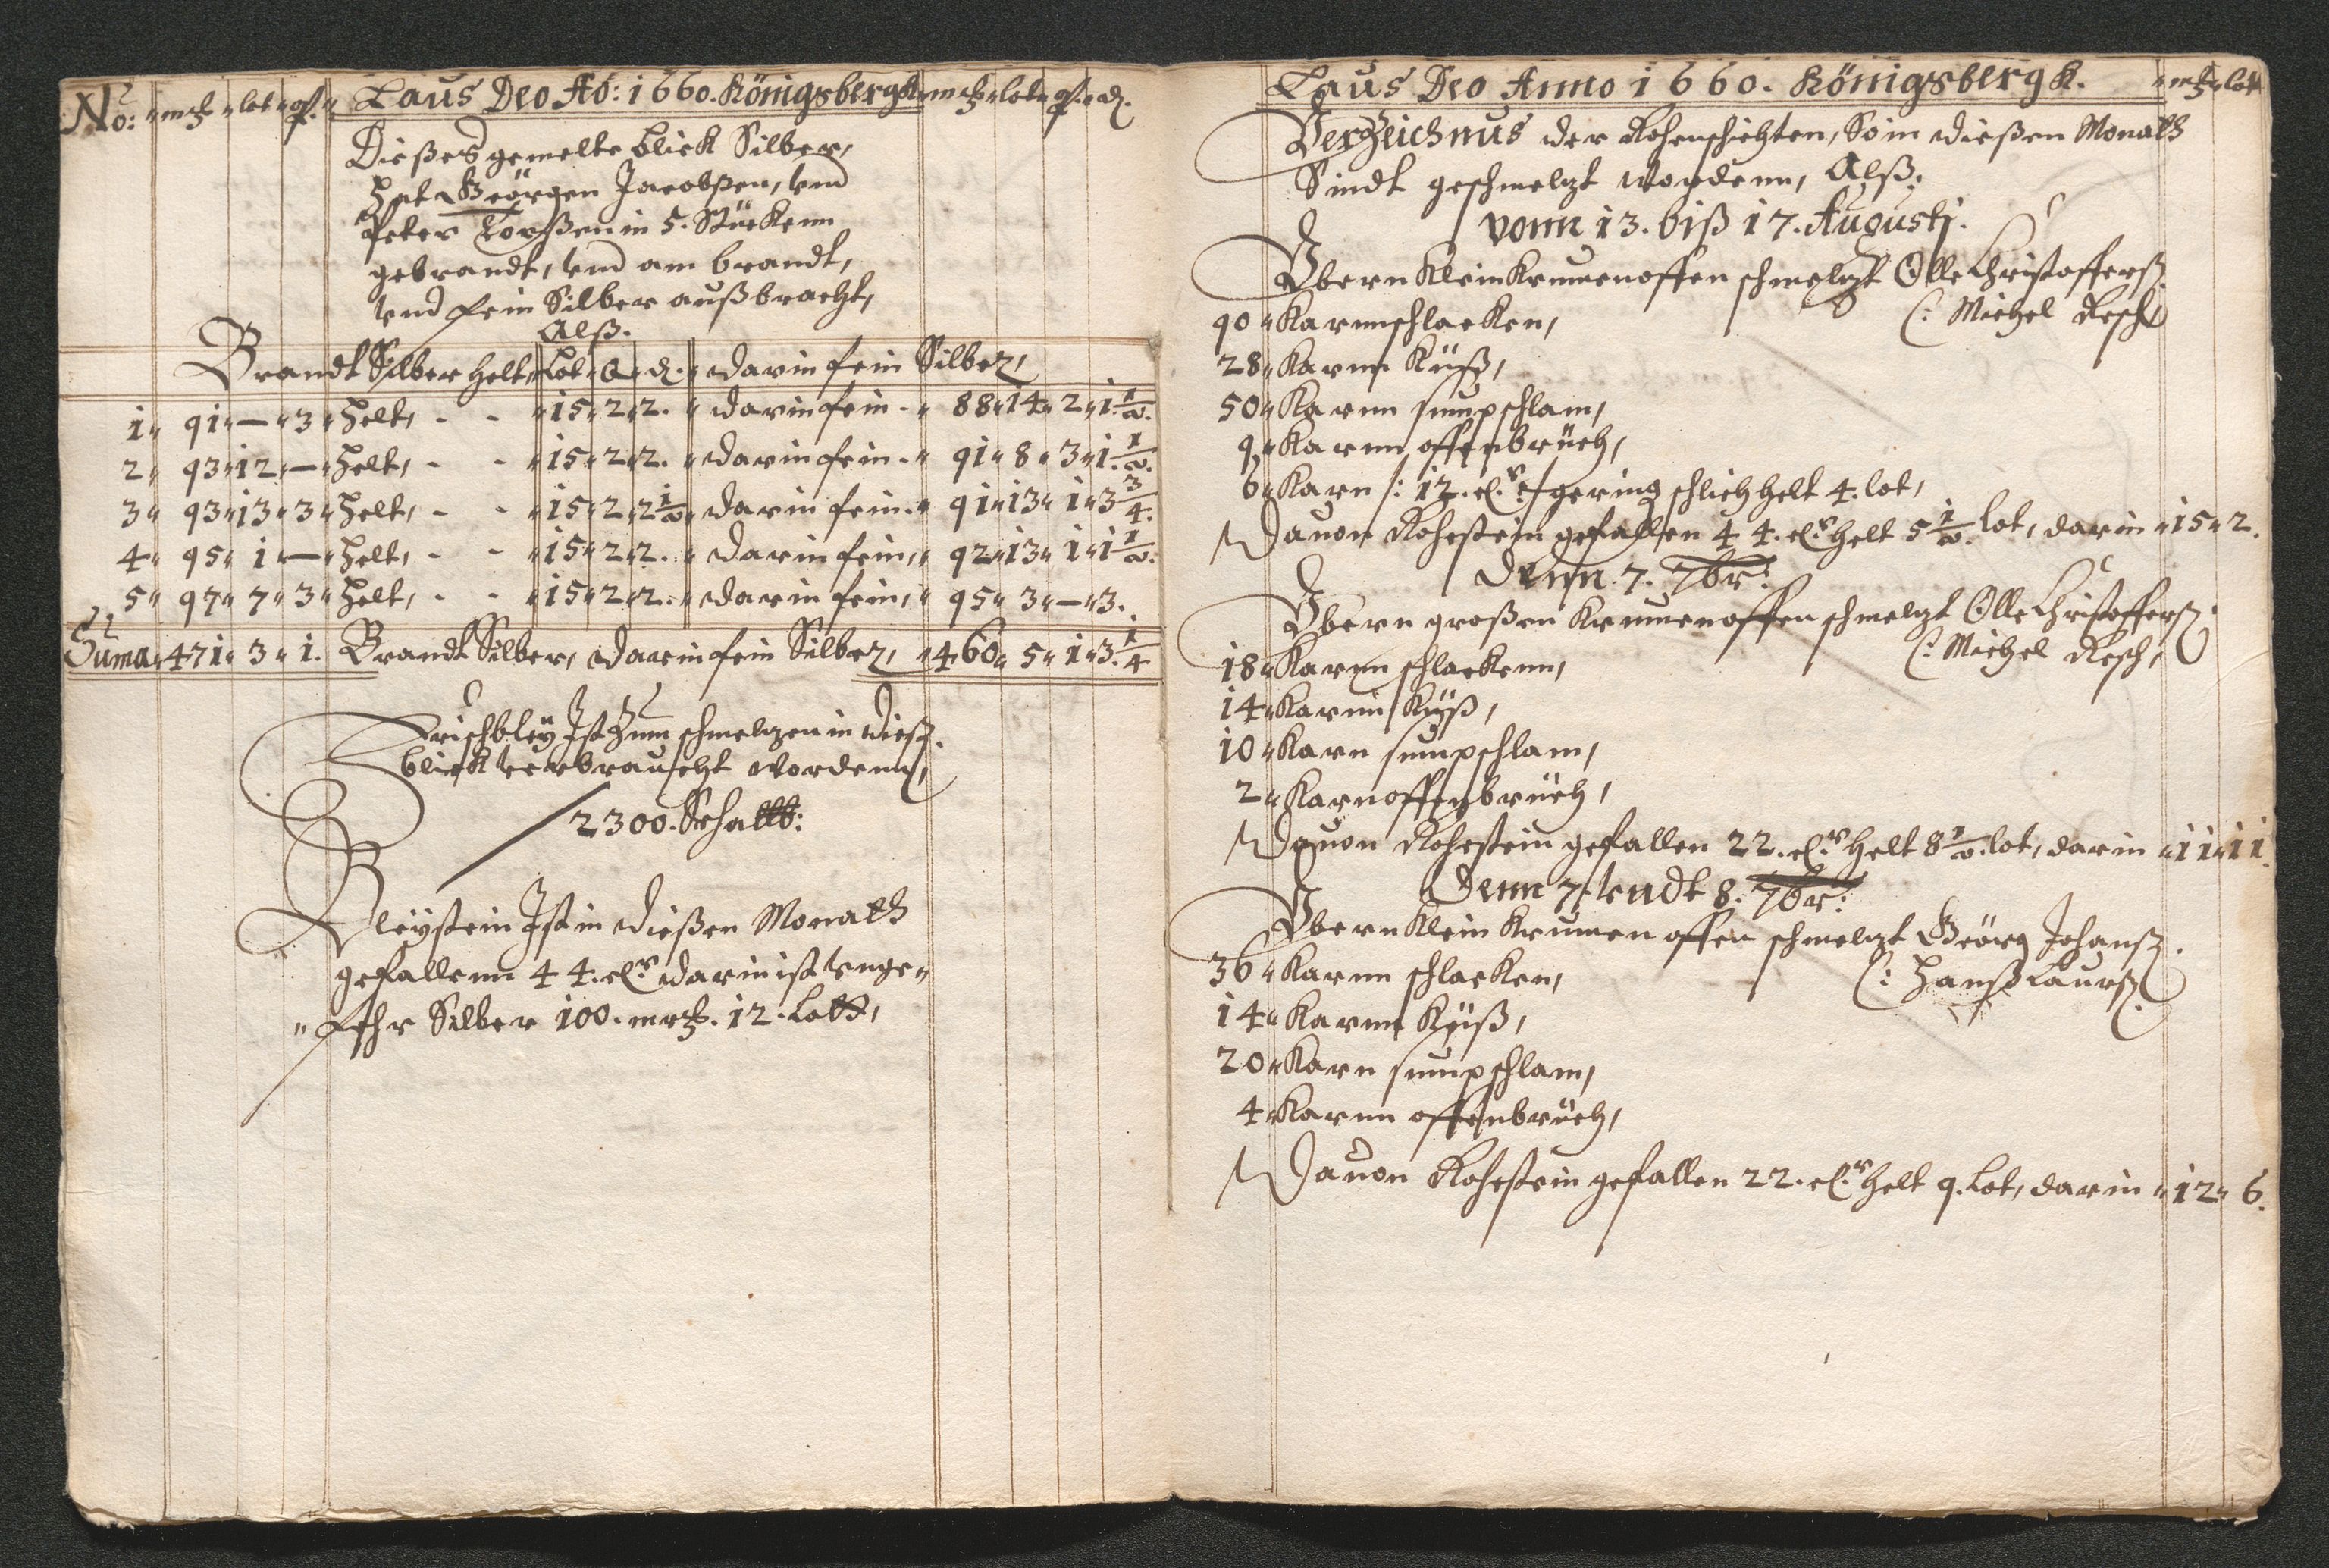 No: mrk lot q. Laus Deo Ao: 1660. Königsbergk mrk lot q. d.
Dießes gemelte blick Silber,
hat Geörgen Jacobßen, vnd
Peter Torßen in 5. Stücken
gebrandt, vnd am brandt,
vnd fein Silber außbracht,
Alß.
Brandt Silber helt, Lot Q d. darin fein Silber,
1 91 — 3 helt, - - 15 2 2. darin fein - 88 14 2 1 1/2.
2 93 12 — helt, - - 15 2 2. darin fein - 91 8 3 1 1/2.
3 93 13 3 helt, - - 15 2 2 1/2 darin fein - 91 13 1 3 3/4.
4 95 1 — helt, - - 15 2 2. darin fein, 92 13 1 1 1/2.
5 97 7 3 helt, - - 15 2 2. darin fein, 95 3 — 3.
Suma 471 3 1. Brandt Silber, darin fein Silber, 460 5 1 3. 1/4
Frischbleÿ Ist Zum schmelzen in dieß.
blick verbraucht wordenn,
2300. Schallb:
Bleÿstein Ist in dießen Monath
gefallenn 44. cl.r darin ist vnge„
„fehr Silber 100. mrk. 12. Lott,
Laus Deo Anno 1660. Königsbergk. mrk lott
Verzeichnus der Rohenschichten, So in dießen Monath
Sindt geschmelzt wordenn, Alß.
vonn 13. biß 17. Augustj.
Vbern klein Krumenoffen schmelzt Olle Christofferß.
90 Karnnschlacken, (: Michel Resch
28 Karnn Küß,
50 Karnn sumpschlam,
9 Karnn offenbrüch,
6 Karn /: 12. cl.r :/ gering schlich helt 4. lot,
Dauon Rohstein gefallen 44. cl.r helt 5 1/2. lot, darin 15 2.
Denn. 7. 7br:
Vbern großen Krumenoffen schmelzt Olle Christofferß.
18 Karnn schlackenn, (: Michel Resch,
14 Karnn Küß,
10 Karn sumpschlam,
2 Karnoffenbrüch,
Dauon Rohstein gefallen 22. cl.r helt 8 1/2. lot, darin 11 11.
Denn 7. vndt 8. 7br:
Vbern klein Krumen offen schmelzt Geörg Johanß.
36 Karnn schlacken, (: Hanß Laurß.
14 Karnn Küß,
20 Karn sumpschlam,
4 Karnn offenbrüch,
Dauon Rohstein gefallen 22. cl.r helt 9. Lot, darin 12 6.